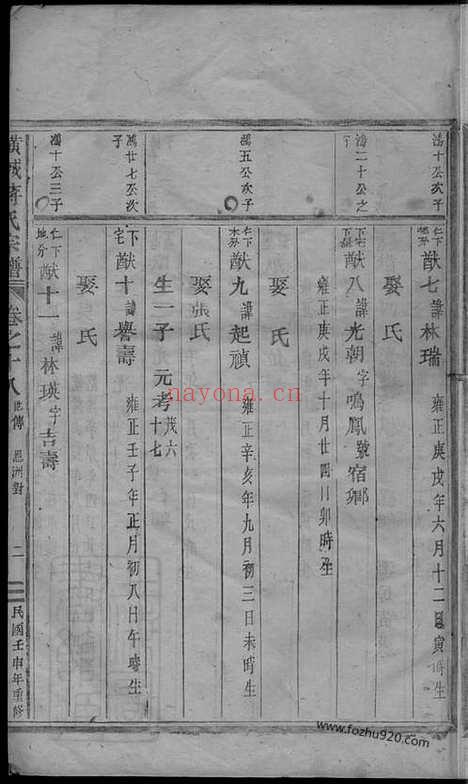 鴻十公次子
仁下 猷七 諱林瑞 雍正庚戌年六月十二日寅時生
娶 氏
鴻二十公之子
下宅 猷八 諱光朝字鳴鳳號宿鄉
雍正庚戌年十月廿四日卯時生
娶 氏
鴻五公次子
仁下 猷九 諱起禎 雍正辛亥年九月初三日未時生
娶張氏
生一子 元考 茂六十七
鴻廿七公次子
下宅 猷十 諱譽壽 雍正壬子年正月初八日午時生
娶 氏
鴻十公三子
仁下 地分 猷十一 諱林瑛字吉壽
氏宗譜 卷之十八 世傳 二 民國壬申年重修
nayona.cn
www.fozhu920.com